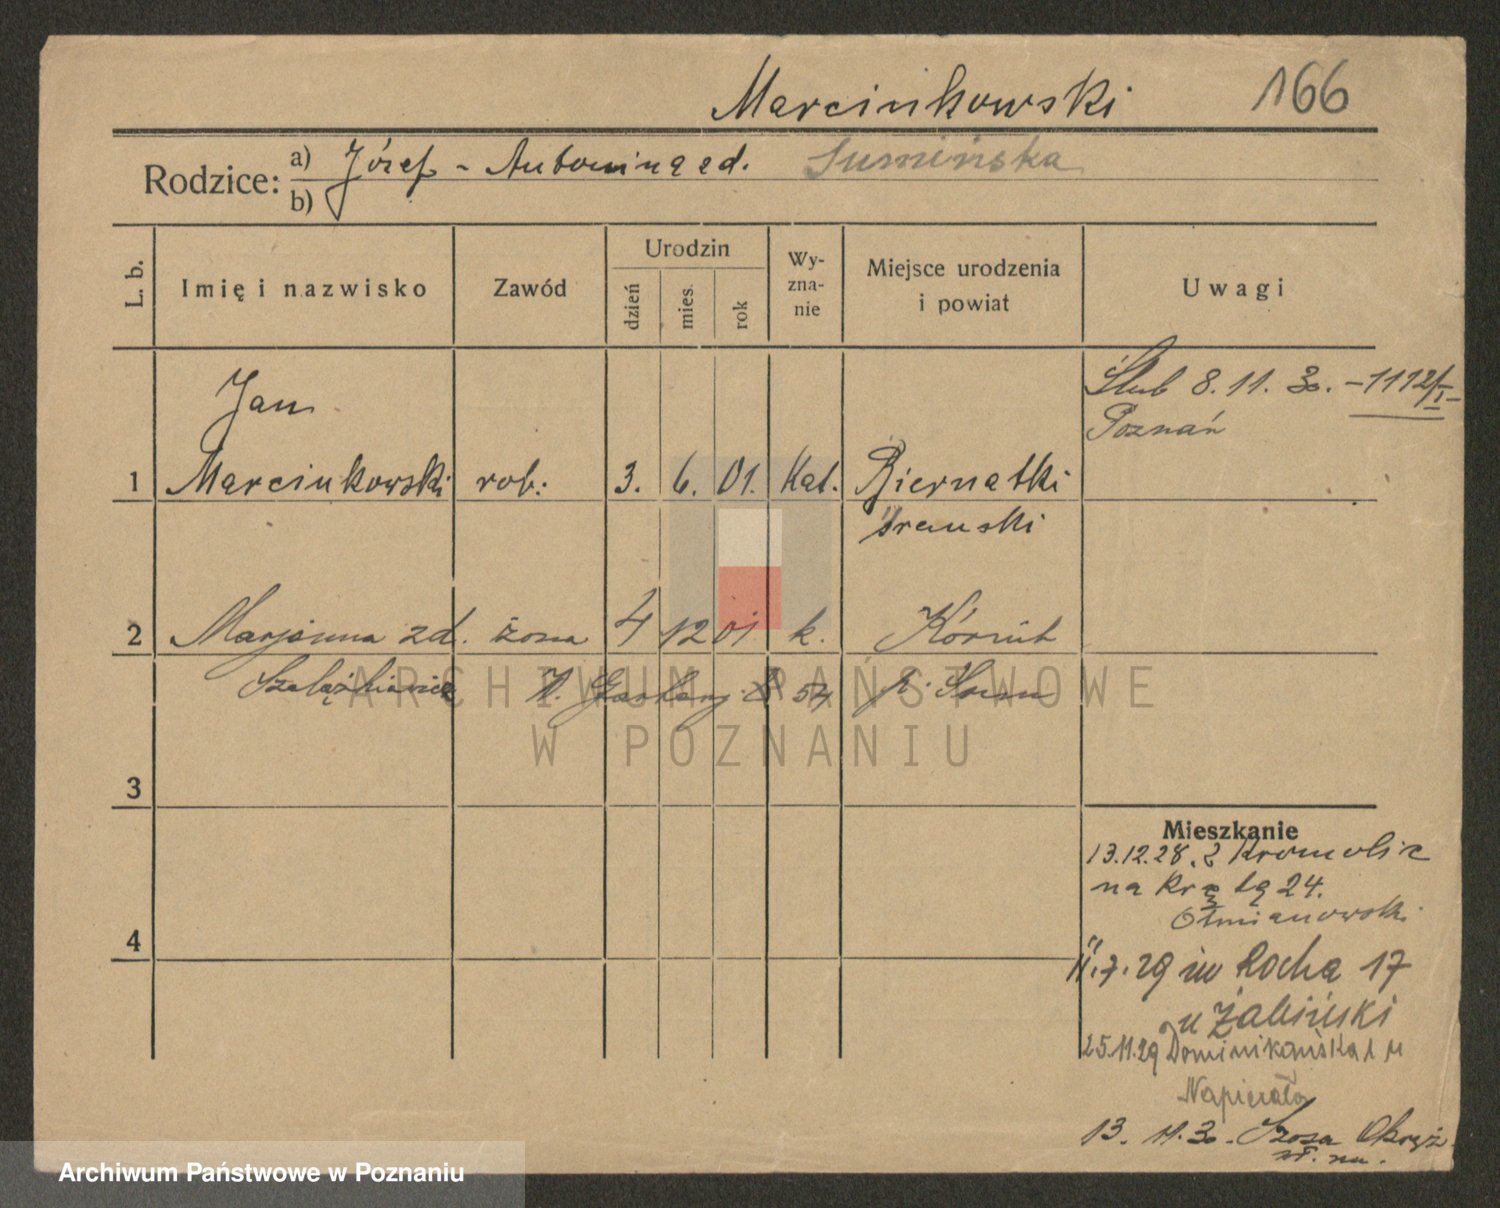 Marcinkowski 166
Rodzice: a) Józef - Antonina zd. Sumińska
b)
L. b. Imię i nazwisko Zawód Urodzin dzień mies. rok Wyznanie Miejsce urodzenia i powiat Uwagi
Ślub 8.11.30. - 1112/I
Poznań
Jan
1 Marcinkowski rob. 3. 6. 01. Kat. Biernatki
śremski
2 Marjanna zd. żona 4 12 01. k. Kórnik
p. Śrem
3
4
Mieszkanie
13.12.28. z Kromolic
na Krętą 24.
Ołmianowski
11.7.29 św Rocha 17
u Żabiński
25.11.29 Dominikańska 1 u
Napierała
13. 11.30. Szosa Okręż
ARCHIWUM PAŃSTWOWE
W POZNANIU
Archiwum Państwowe w Poznaniu